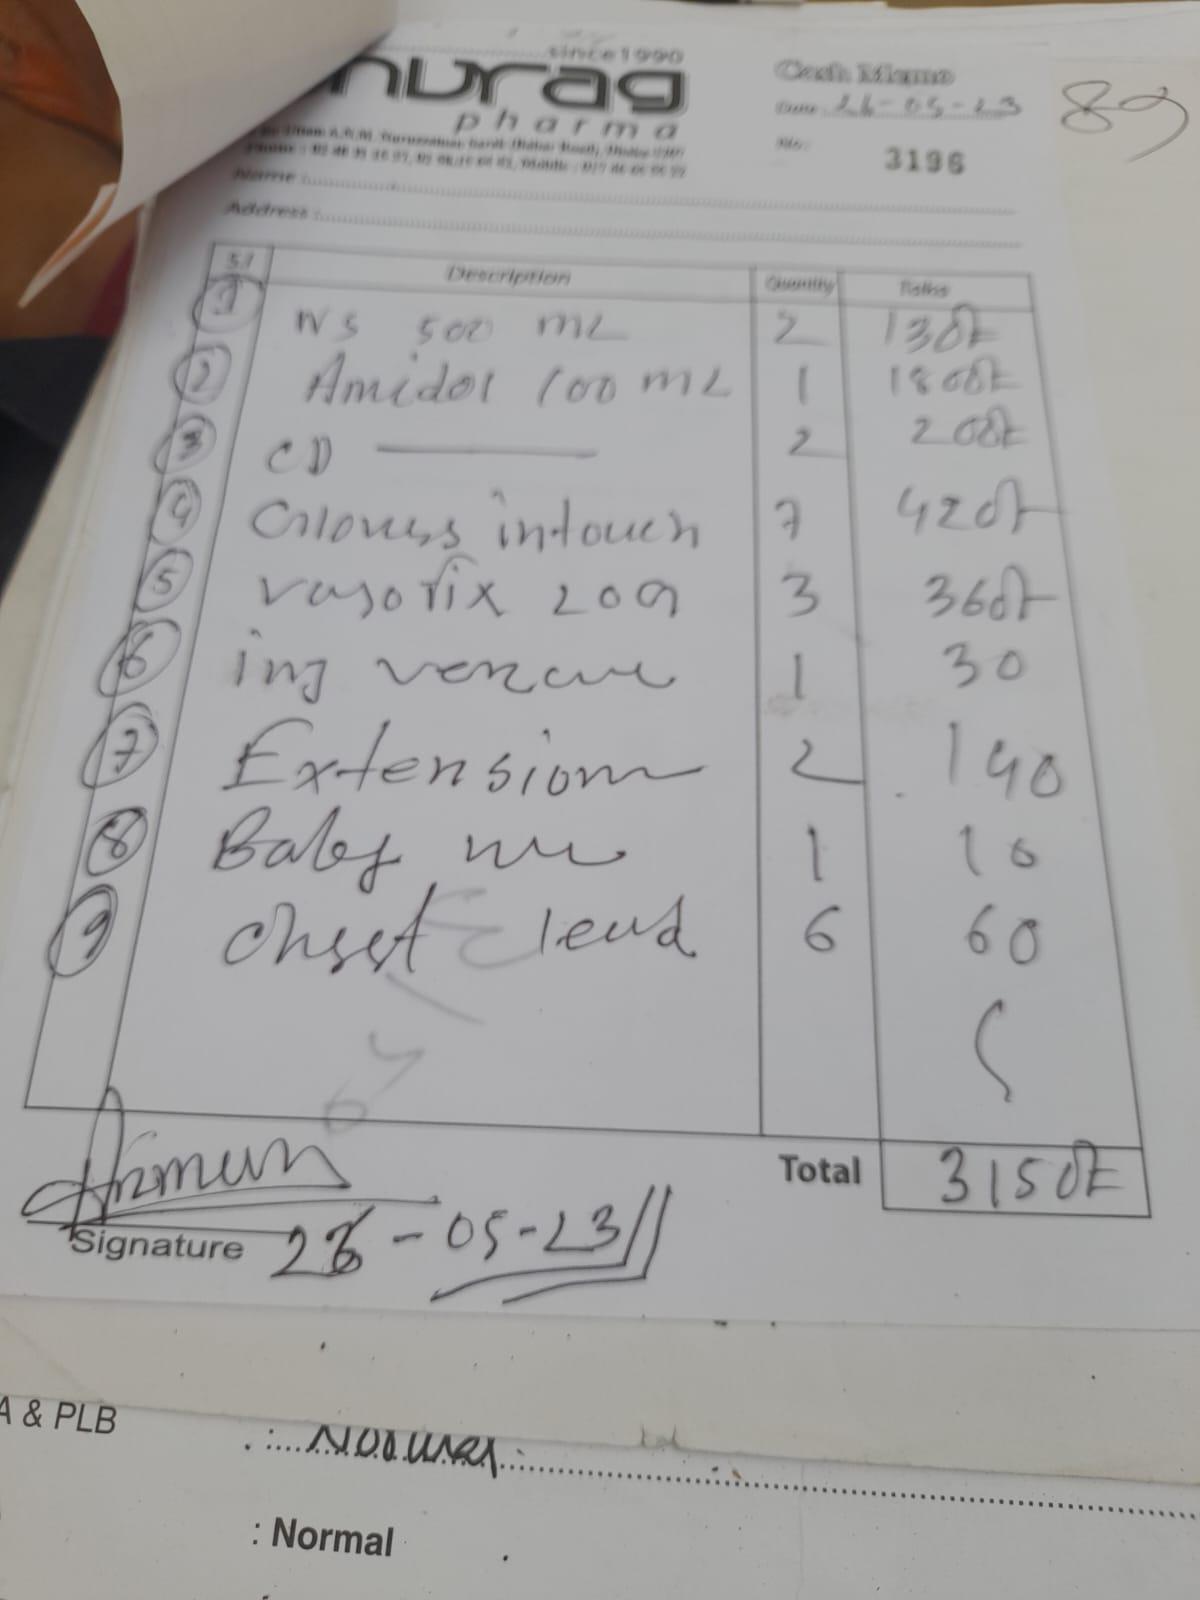 since 1990
nurag
pharma
Cash Memo
Date 26-05-23
89
No: 3196
Name :
Address :
S.l Description Quantity Taka
1 NS 500 mL 2 130/-
2 Amidol 100 mL 1 1800/-
3 CD 2 200/-
4 Gloves intouch 7 420/-
5 vasofix 20G 3 360/-
6 inj 1 30
7 Extension 2 140
8 Baby 1 10
9 chest lead 6 60
Total 3150/-
Signature 26-05-23
A & PLB
: Normal
: Normal